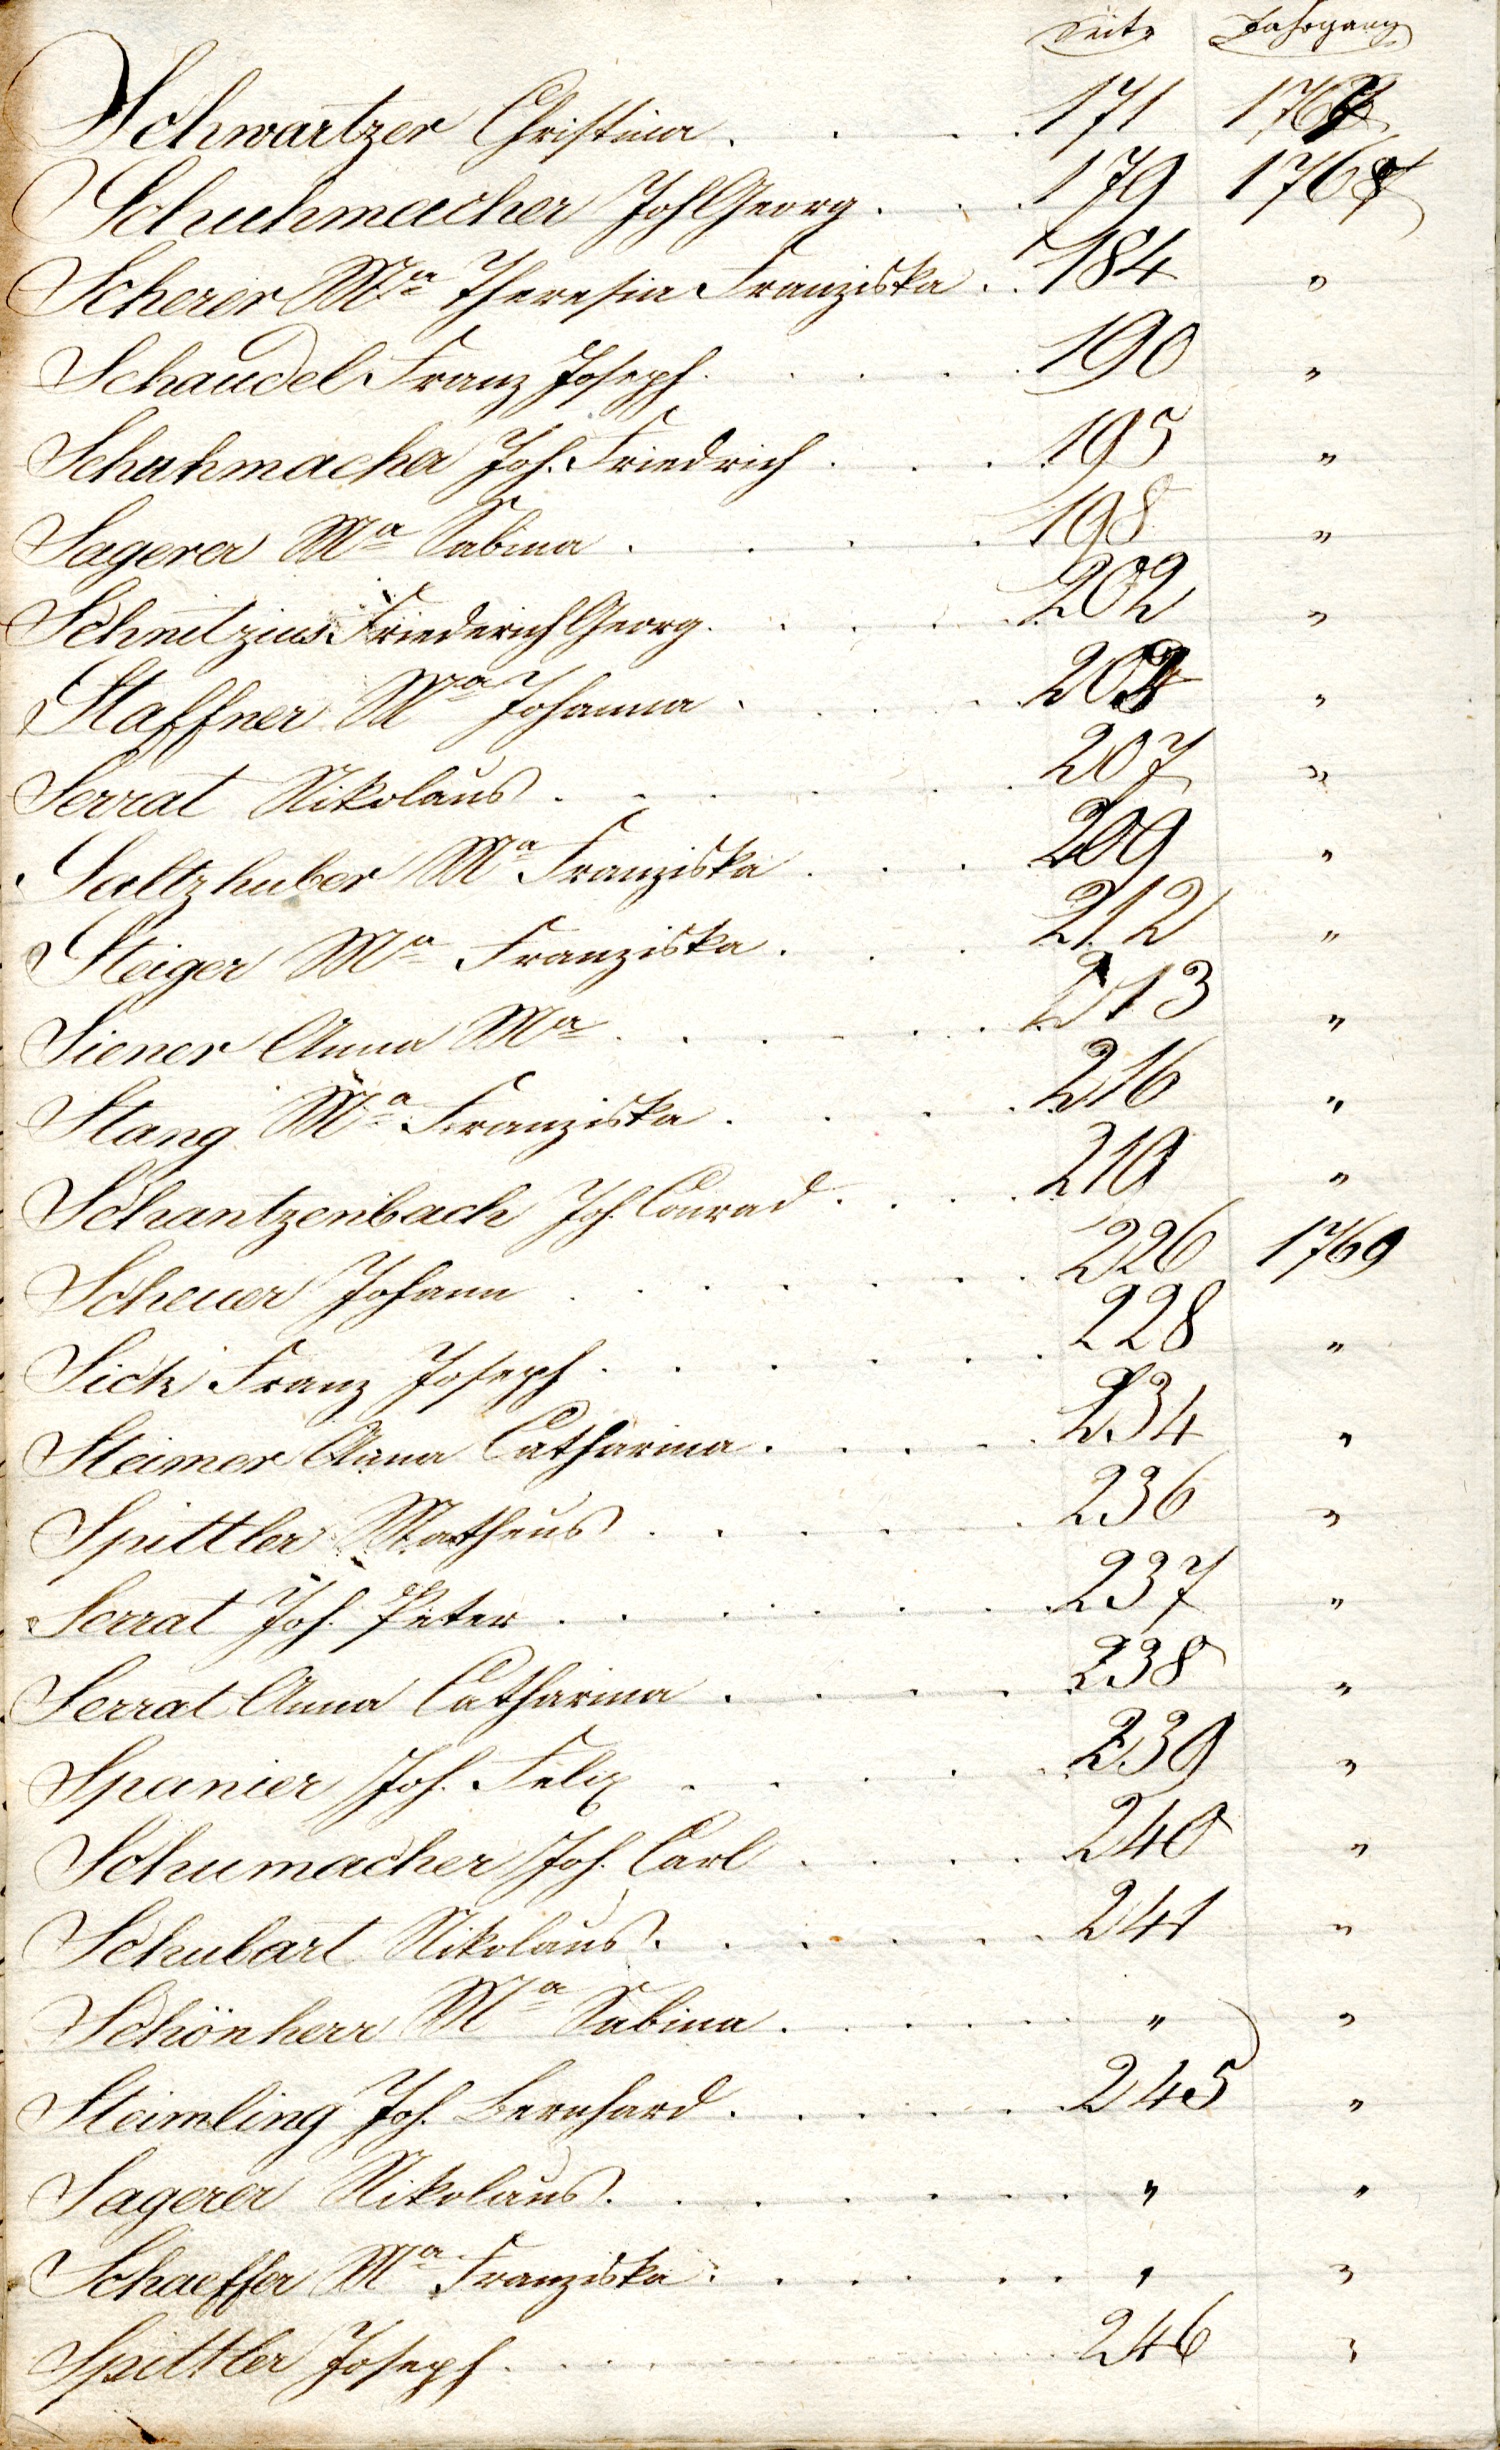 Seite Jahrgang
Schwartzer Christina . . . 171 1767
Schuhmacher Joh Georg . . . 179 1768
Scherer Ma Theresia Franziska . . 184 "
Schaudel Franz Joseph . . . . . 190 "
Schuhmacher Joh. Friedrich . . . . 195 "
Sagerer Ma Sabina . . . . 198 "
Schnitzius Friederich Georg . . . . . 202 "
Staffner Ma Johanna . . . . 204 "
Serrat Nikolaus . . . . . . 207 "
Saltzhuber Ma Franziska . . . 209 "
Steiger Ma Franziska . . . 212 "
Siener Anna Ma . . . . . . 213 "
Stang Ma Franziska . . . . 216 "
Schantzenbach Joh. Conrad . . . . 219 "
Scheuer Johann . . . . . . . 226 1769
Sick Franz Joseph . . . . . . 228 "
Steimer Anna Catharina . . . . . 234 "
Spittler Matheus . . . . . . 236 "
Serrat Joh. Peter . . . . . . . 237 "
Serrat Anna Catharina . . . . . 238 "
Spanier Joh. Felix . . . . . 239 "
Schumacher Joh. Carl . . . . 240 "
Schubart Nikolaus . . . . . . 241 "
Schönherr Ma Sabina . . . . . " "
Steimling Joh. Bernhard . . . . . . 245 "
Sagerer Nikolaus . . . . . . . . " "
Schaeffer Ma Franziska . . . . . . . " "
Spittler Joseph . . . . . . . . 246 "